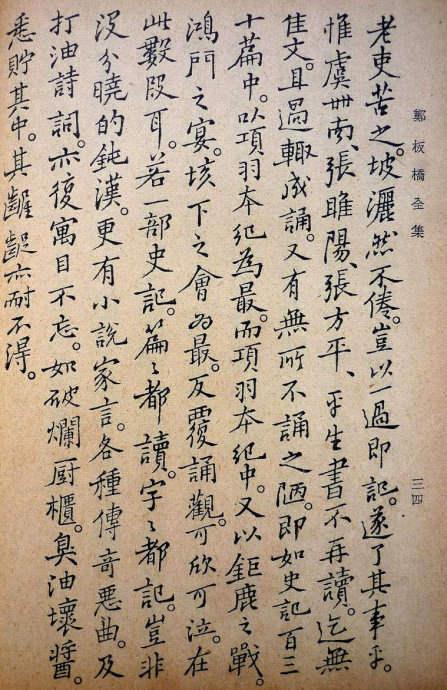 鄭板橋全集
三四
老吏苦之。坡灑然不倦。豈以一過即記。遂了其事乎。
惟虞世南、張睢陽、張方平、平生書不再讀。迄無
佳文。且過輒成誦。又有無所不誦之陋。即如史記百三
十篇中。以項羽本紀為最。而項羽本紀中。又以鉅鹿之戰。
鴻門之宴。垓下之會為最。反覆誦觀。可欣可泣。在
此數段耳。若一部史記。篇〻都讀。字〻都記。豈非
沒分曉的鈍漢。更有小說家言。各種傳奇惡曲。及
打油詩詞。亦復寓目不忘。如破爛厨櫃。臭油壞醬。
悉貯其中。其齷齪亦耐不得。